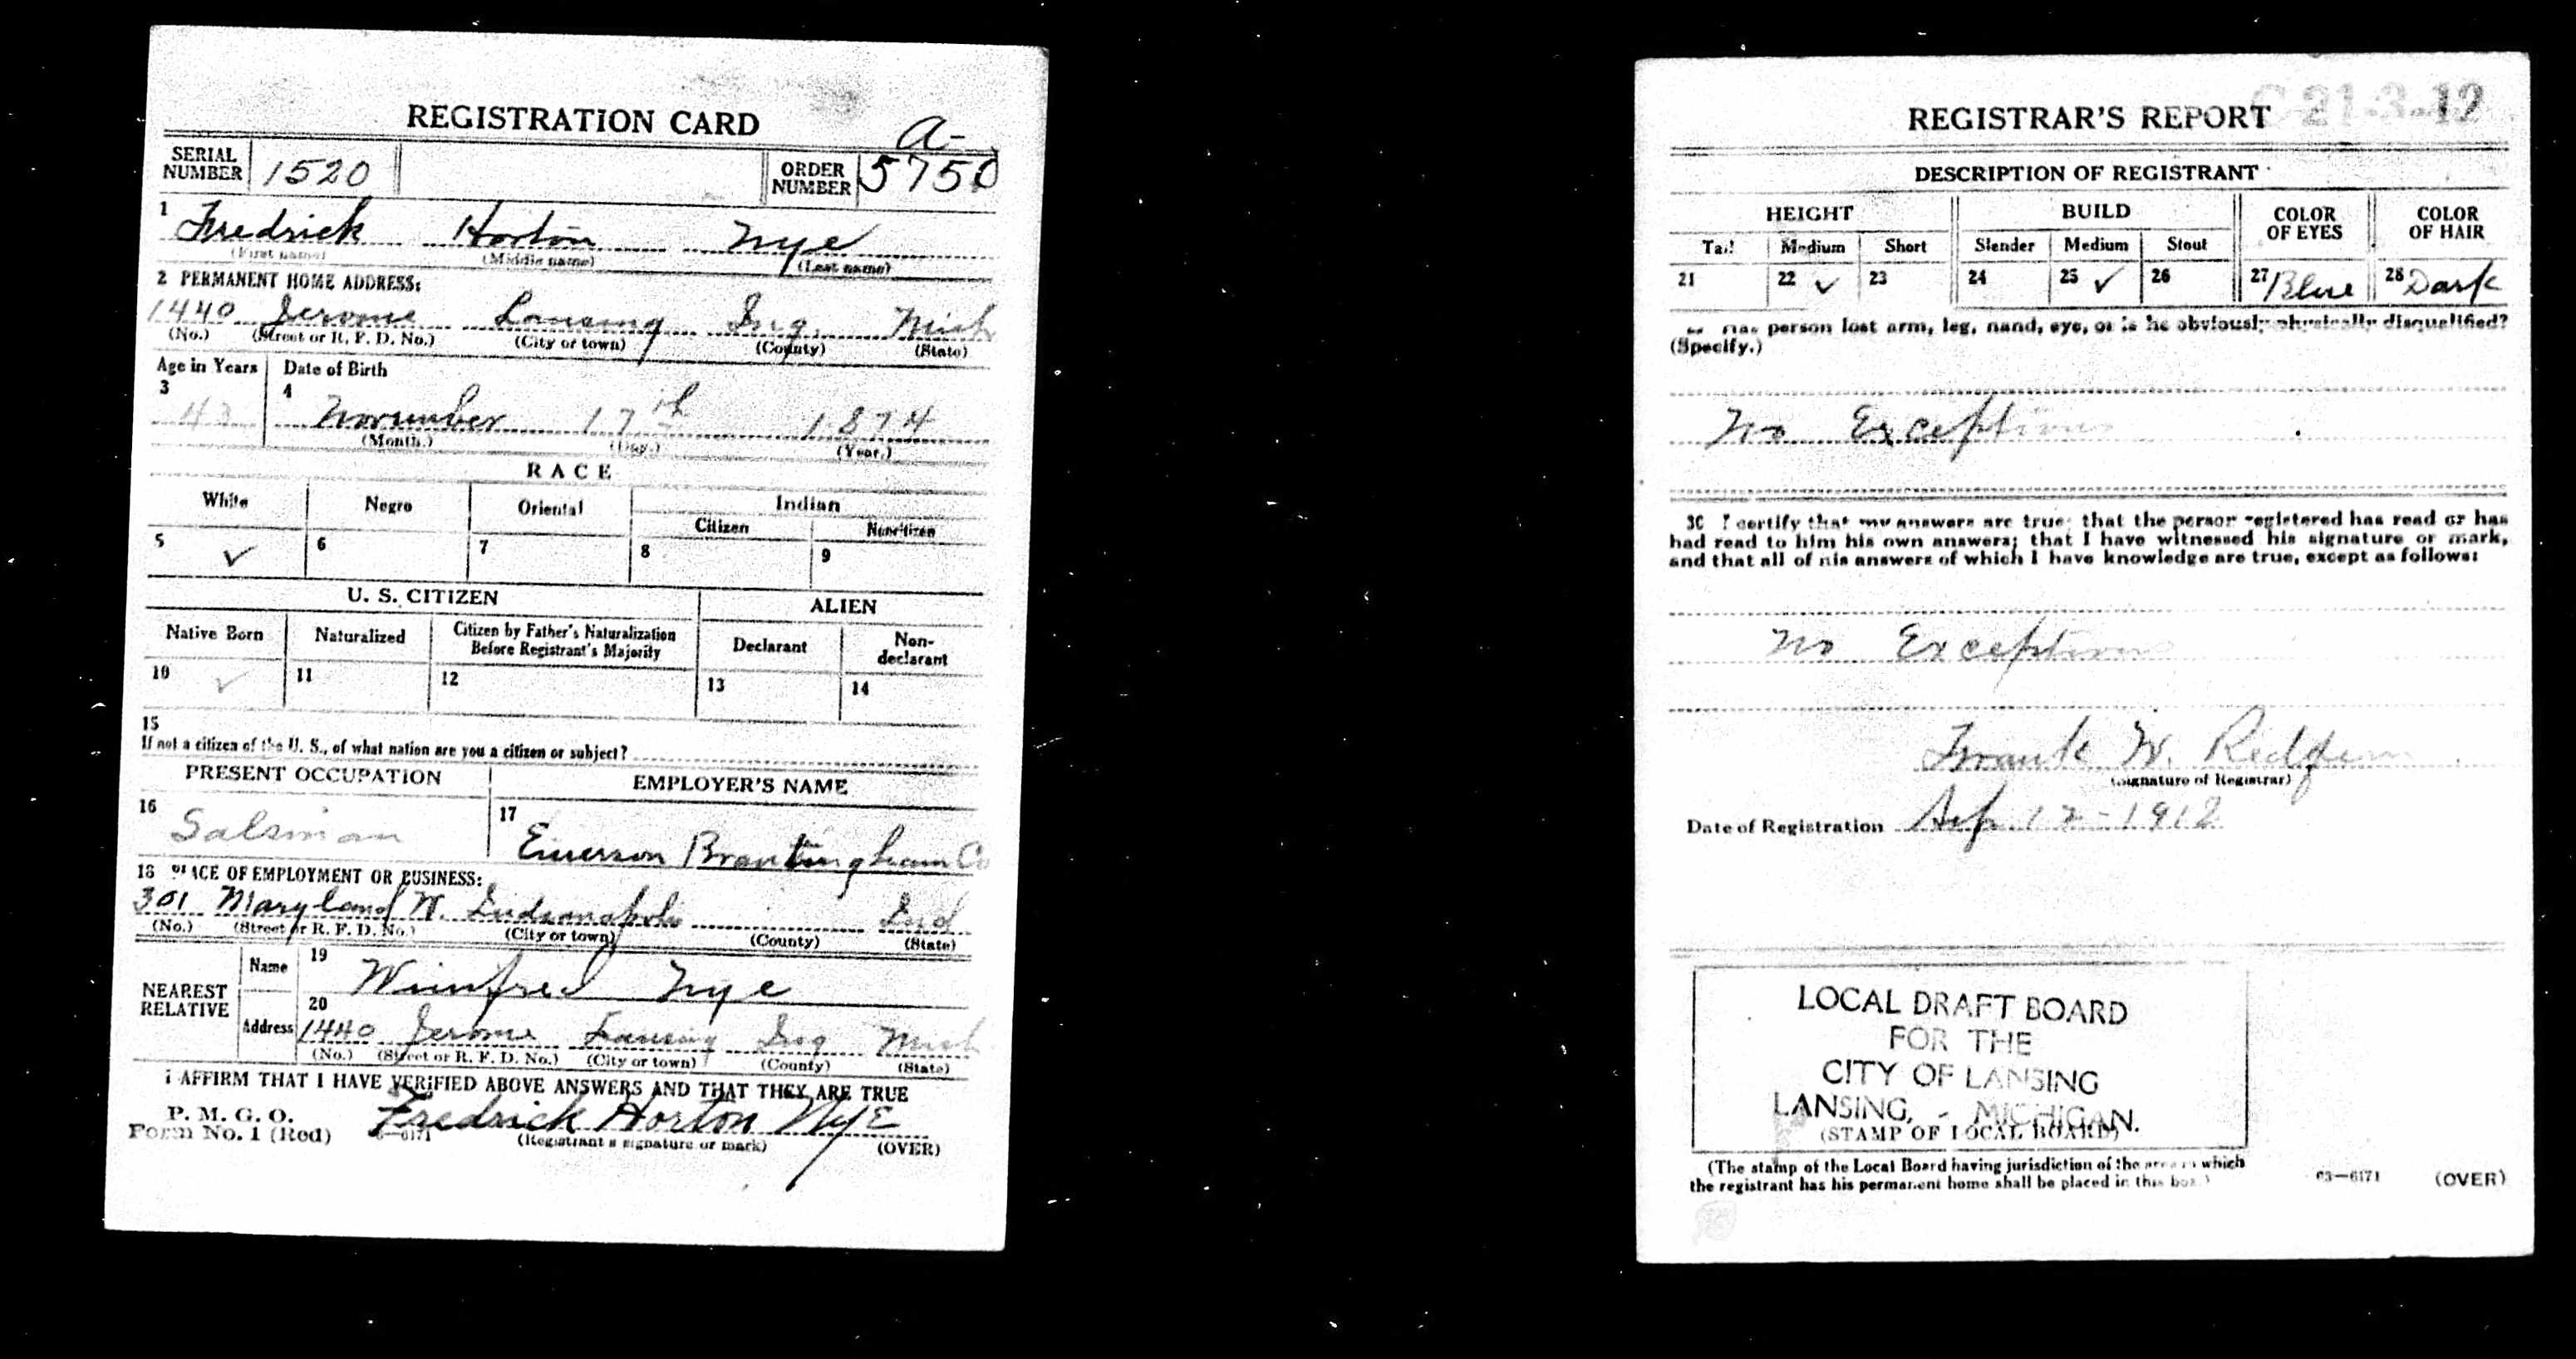 REGISTRATION CARD
SERIAL NUMBER 1520 ORDER NUMBER A- 5750
1 Fredrick Horton Nye
(First name) (Middle name) (Last name)
2 PERMANENT HOME ADDRESS:
1440 Jerome Lansing Ing. Mich
(No.) (Street or R. F. D. No.) (City or town) (County) (State)
Age in Years Date of Birth
3 43 4 November 17th 1874
(Month.) (Day.) (Year.)
RACE
White Negro Oriental Indian
Citizen Noncitizen
5 ✓ 6 7 8 9
U. S. CITIZEN ALIEN
Native Born Naturalized Citizen by Father's Naturalization Before Registrant's Majority Declarant Non-declarant
10 ✓ 11 12 13 14
15
If not a citizen of the U. S., of what nation are you a citizen or subject?
PRESENT OCCUPATION EMPLOYER'S NAME
16 Salsman 17 Emerson Brantingham Co
18 PLACE OF EMPLOYMENT OR BUSINESS:
301 Maryland W. Indianapolis Ind
(No.) (Street or R. F. D. No.) (City or town) (County) (State)
NEAREST RELATIVE Name 19 Winnfred Nye
Address 20 1440 Jerome Lansing Ing Mich
(No.) (Street or R. F. D. No.) (City or town) (County) (State)
I AFFIRM THAT I HAVE VERIFIED ABOVE ANSWERS AND THAT THEY ARE TRUE
P. M. G. O.
Form No. 1 (Red) Fredrick Horton Nye
(Registrant's signature or mark) (OVER)
REGISTRAR'S REPORT 21-3-12
DESCRIPTION OF REGISTRANT
HEIGHT BUILD COLOR OF EYES COLOR OF HAIR
Tall Medium Short Slender Medium Stout
21 22 ✓ 23 24 25 ✓ 26 27 Blue 28 Dark
Has person lost arm, leg, hand, eye, or is he obviously physically disqualified?
(Specify.)
No Exceptions
30 I certify that my answers are true; that the person registered has read or has
had read to him his own answers; that I have witnessed his signature or mark,
and that all of his answers of which I have knowledge are true, except as follows:
No Exceptions
Frank W. Redfern
(Signature of Registrar)
Date of Registration Sep 12-1918
LOCAL DRAFT BOARD
FOR THE
CITY OF LANSING
LANSING, - MICHIGAN.
(STAMP OF LOCAL BOARD)
(The stamp of the Local Board having jurisdiction of the area in which
the registrant has his permanent home shall be placed in this box.)
03—6171 (OVER)